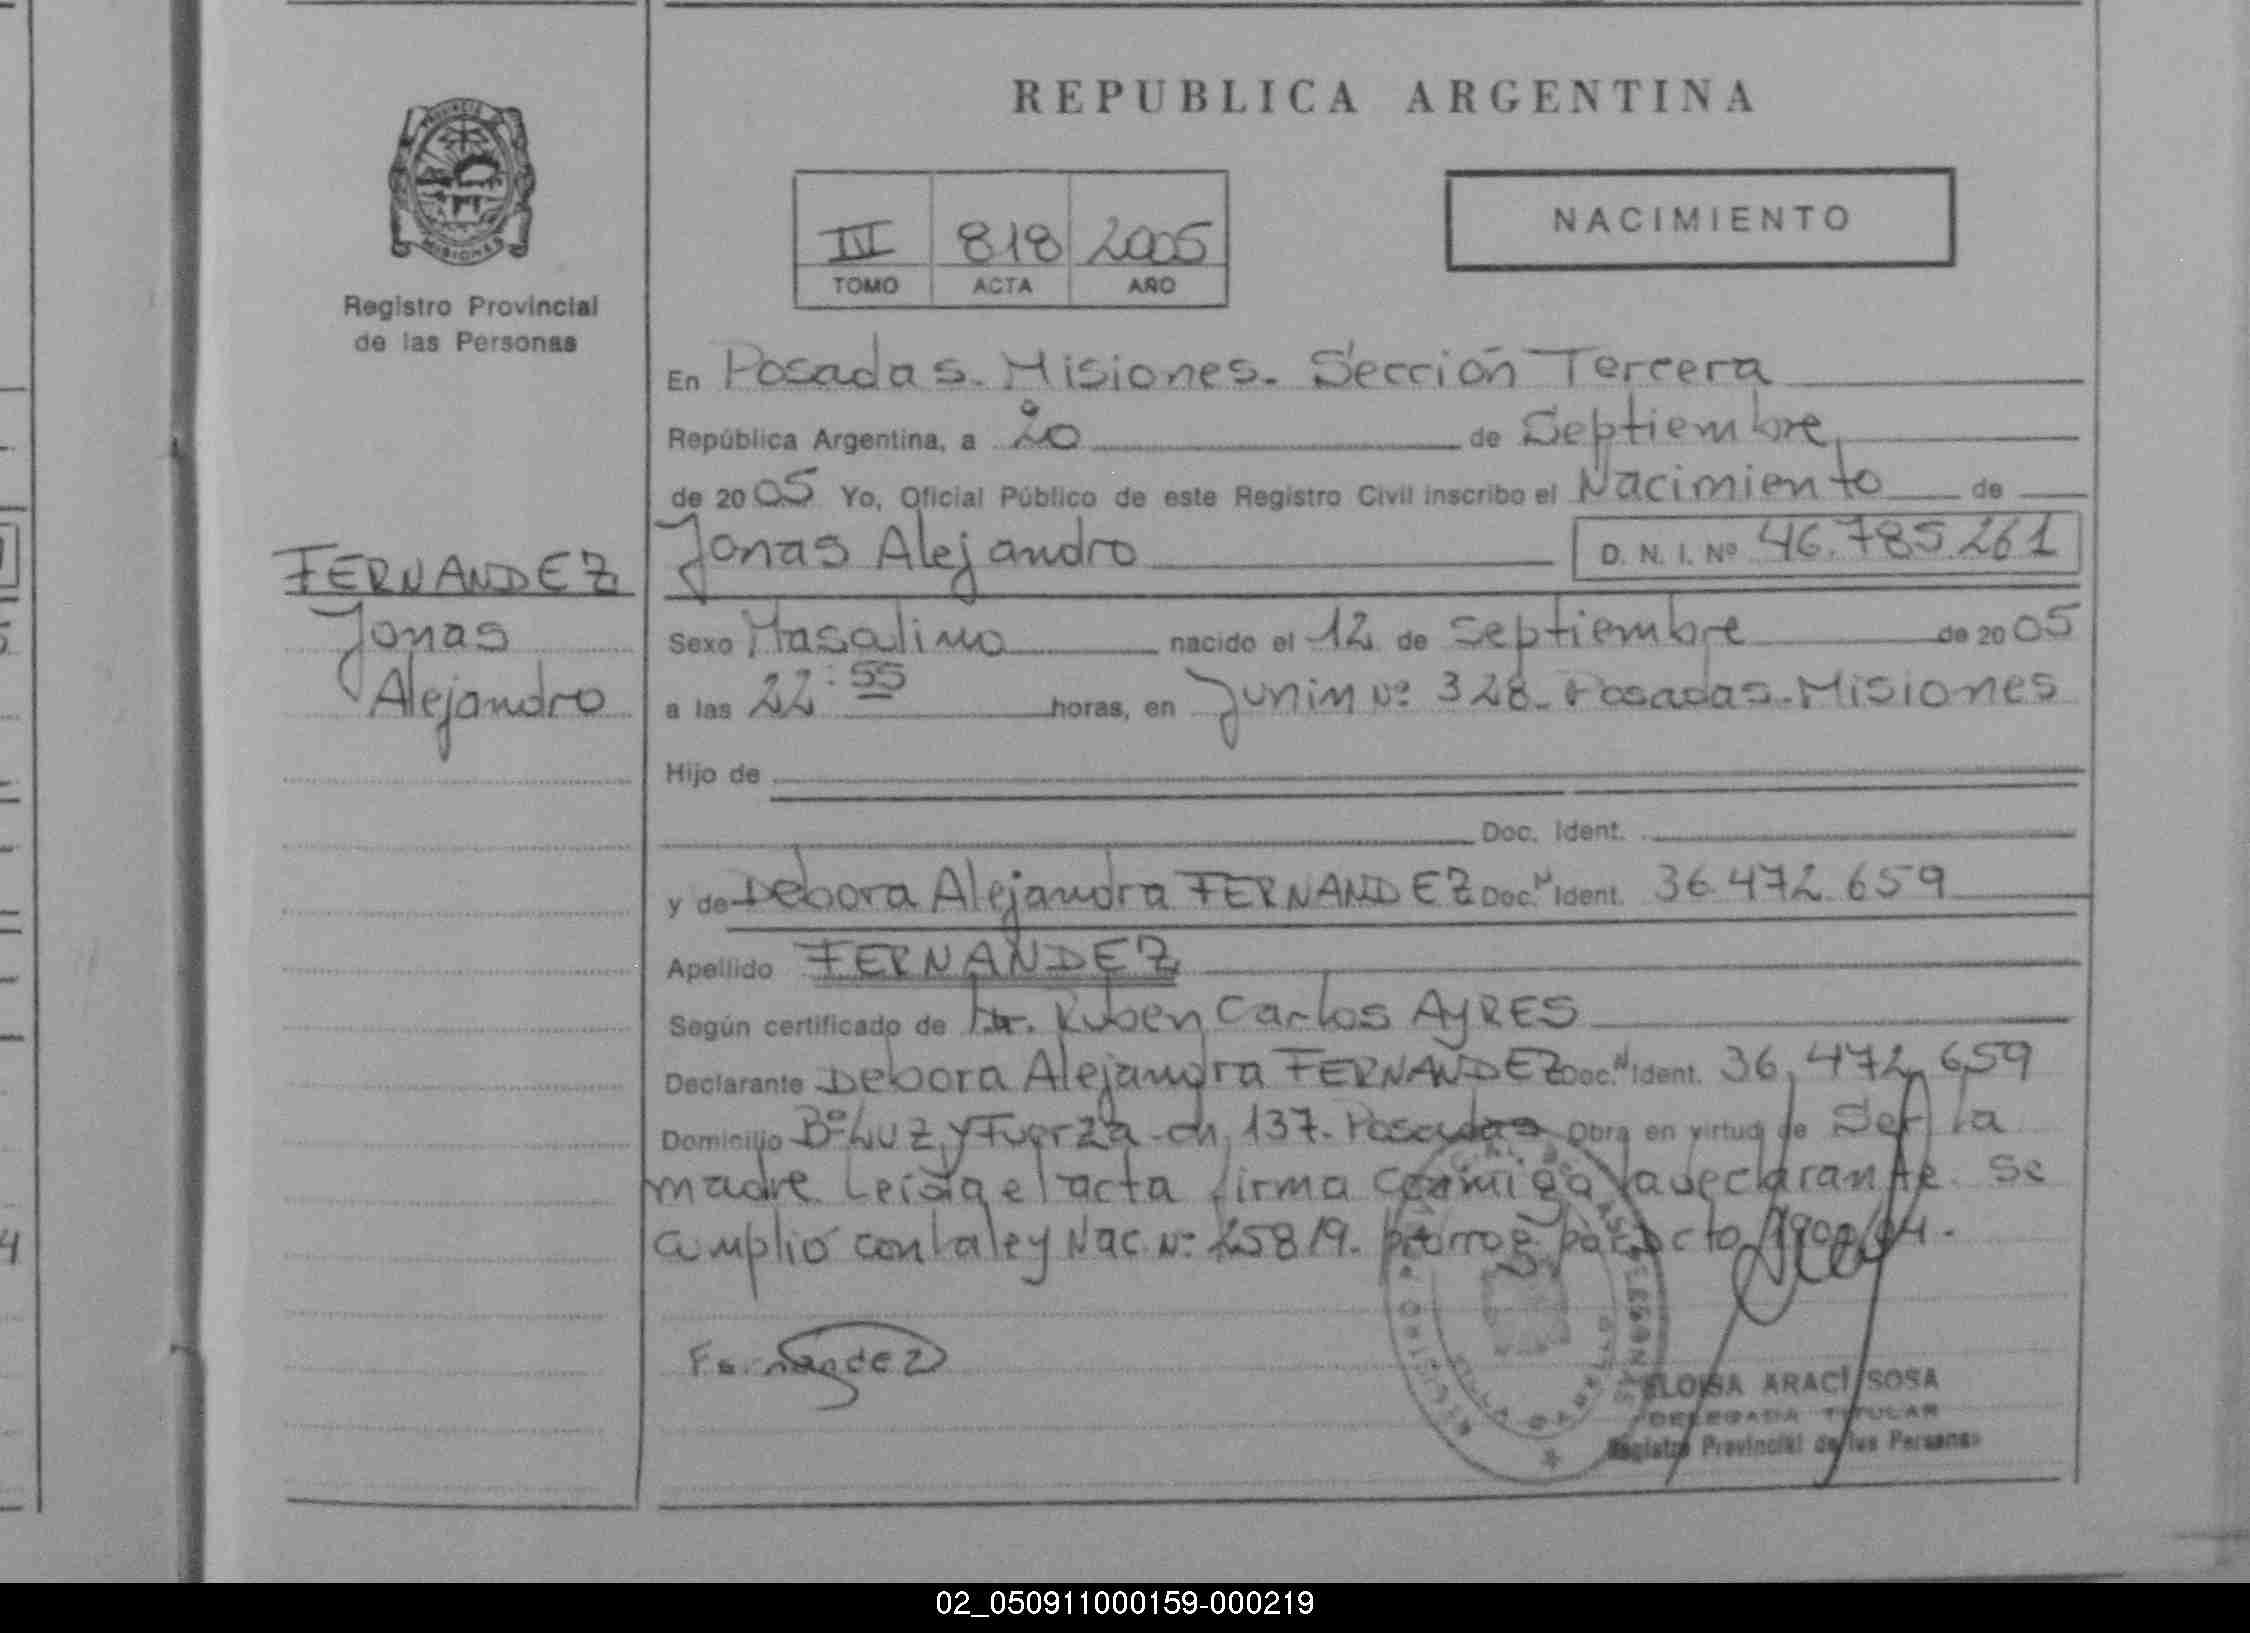 REPUBLICA ARGENTINA
PROVINCIA DE
MISIONES
Registro Provincial
de las Personas
III 818 2005
TOMO ACTA AÑO
NACIMIENTO
En Posadas. Misiones. Sección Tercera
República Argentina, a 20 de Septiembre
de 2005 Yo, Oficial Público de este Registro Civil inscribo el Nacimiento de
FERNANDEZ
Jonas
Alejandro
Jonas Alejandro D. N. I. Nº 46.785.261
Sexo Masculino nacido el 12 de Septiembre de 2005
a las 22:55 horas, en Junin Nº 328. Posadas. Misiones
Hijo de
Doc. Ident.
y de Debora Alejandra FERNANDEZ Doc. Ident. 36.472.659
Apellido FERNANDEZ
Según certificado de Dr. Ruben Carlos AYRES
Declarante Debora Alejandra FERNANDEZ Doc. Ident. 36.472.659
Domicilio Bº Luz y Fuerza ch 137. Posadas Obra en virtud de Ser la
madre Leida el acta firma conmigo la declarante. Se
cumplió con la ley Nac. Nº 25819. prorrog. por Dcto
Fernandez
ELOISA ARACI SOSA
DELEGADA TITULAR
Registro Provincial de las Personas
02_050911000159-000219